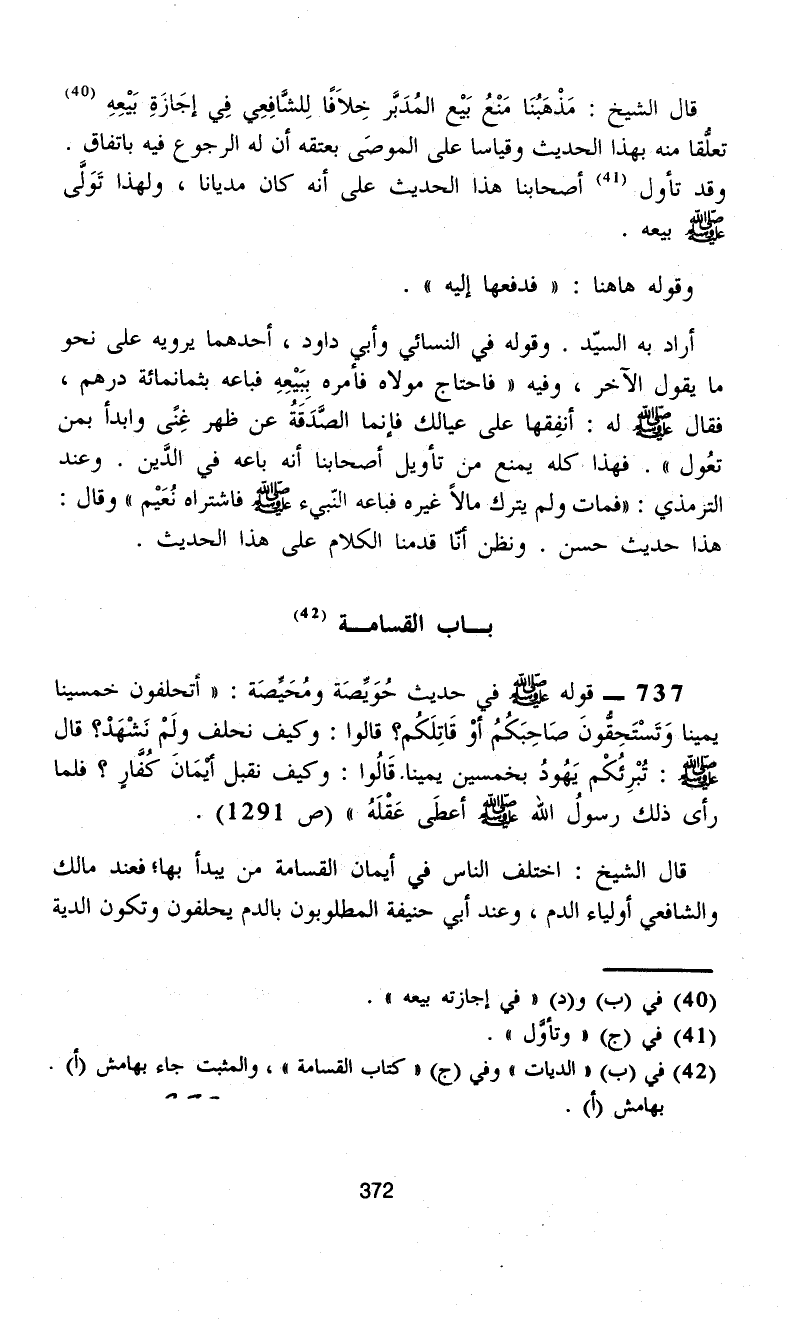 قال الشيخ : مَذْهَبُنَا مَنْعُ بَيْعِ المُدَبَّر خِلاَفًا لِلشَّافِعِي فِي إجَازَةِ بَيْعِهِ (40)
تعلُّقا منه بهذا الحديث وقياسا على الموصَى بعتقه أن له الرجوع فيه باتفاق .
وقد تأول (41) أصحابنا هذا الحديث على أنه كان مديانا ، ولهذا تَوَلَّى
ﷺ بيعه .
وقوله هاهنا : « فدفعها إليه » .
أراد به السيّد . وقوله في النسائي وأبي داود ، أحدهما يرويه على نحو
ما يقول الآخر ، وفيه « فاحتاج مولاه فأمره بِبَيْعِهِ فباعه بثمانمائة درهم ،
فقال ﷺ له : أنفِقها على عيالك فإنما الصَّدَقَةُ عن ظهر غِنًى وابدأ بمن
تعُول » . فهذا كله يمنع من تأويل أصحابنا أنه باعه في الدَّين . وعند
الترمذي : «فمات ولم يترك مالاً غيره فباعه النّبيء ﷺ فاشتراه نُعَيْم » وقال :
هذا حديث حسن . ونظن أنّا قدمنا الكلام على هذا الحديث .
بـــاب القسامـــة (42)
737 ــ قوله ﷺ في حديث حُوَيِّصَة ومُحَيِّصَة : « أتحلفون خمسينا
يمينا وَتَسْتَحِقُّونَ صَاحِبَكُمُ أوْ قَاتِلَكُم؟ قالوا : وكيف نحلف ولَمْ نَشْهَدْ؟ قال
ﷺ : تُبْرِئُكُم يَهُودُ بخمسين يمينا. قَالُوا : وكيف نقبل أيْمَانَ كُفَّارٍ ؟ فلما
رأى ذلك رسولُ الله ﷺ أعطَى عَقْلَهُ » (ص 1291) .
قال الشيخ : اختلف الناس في أيمان القسامة من يبدأ بها؛ فعند مالك
والشافعي أولياء الدم ، وعند أبي حنيفة المطلوبون بالدم يحلفون وتكون الدية
(40) في (ب) و(د) « في إجازته بيعه » .
(41) في (ج) « وتأوَّل » .
(42) في (ب) « الديات » وفي (ج) « كتاب القسامة » ، والمثبت جاء بهامش (أ) .
بهامش (أ) .
372